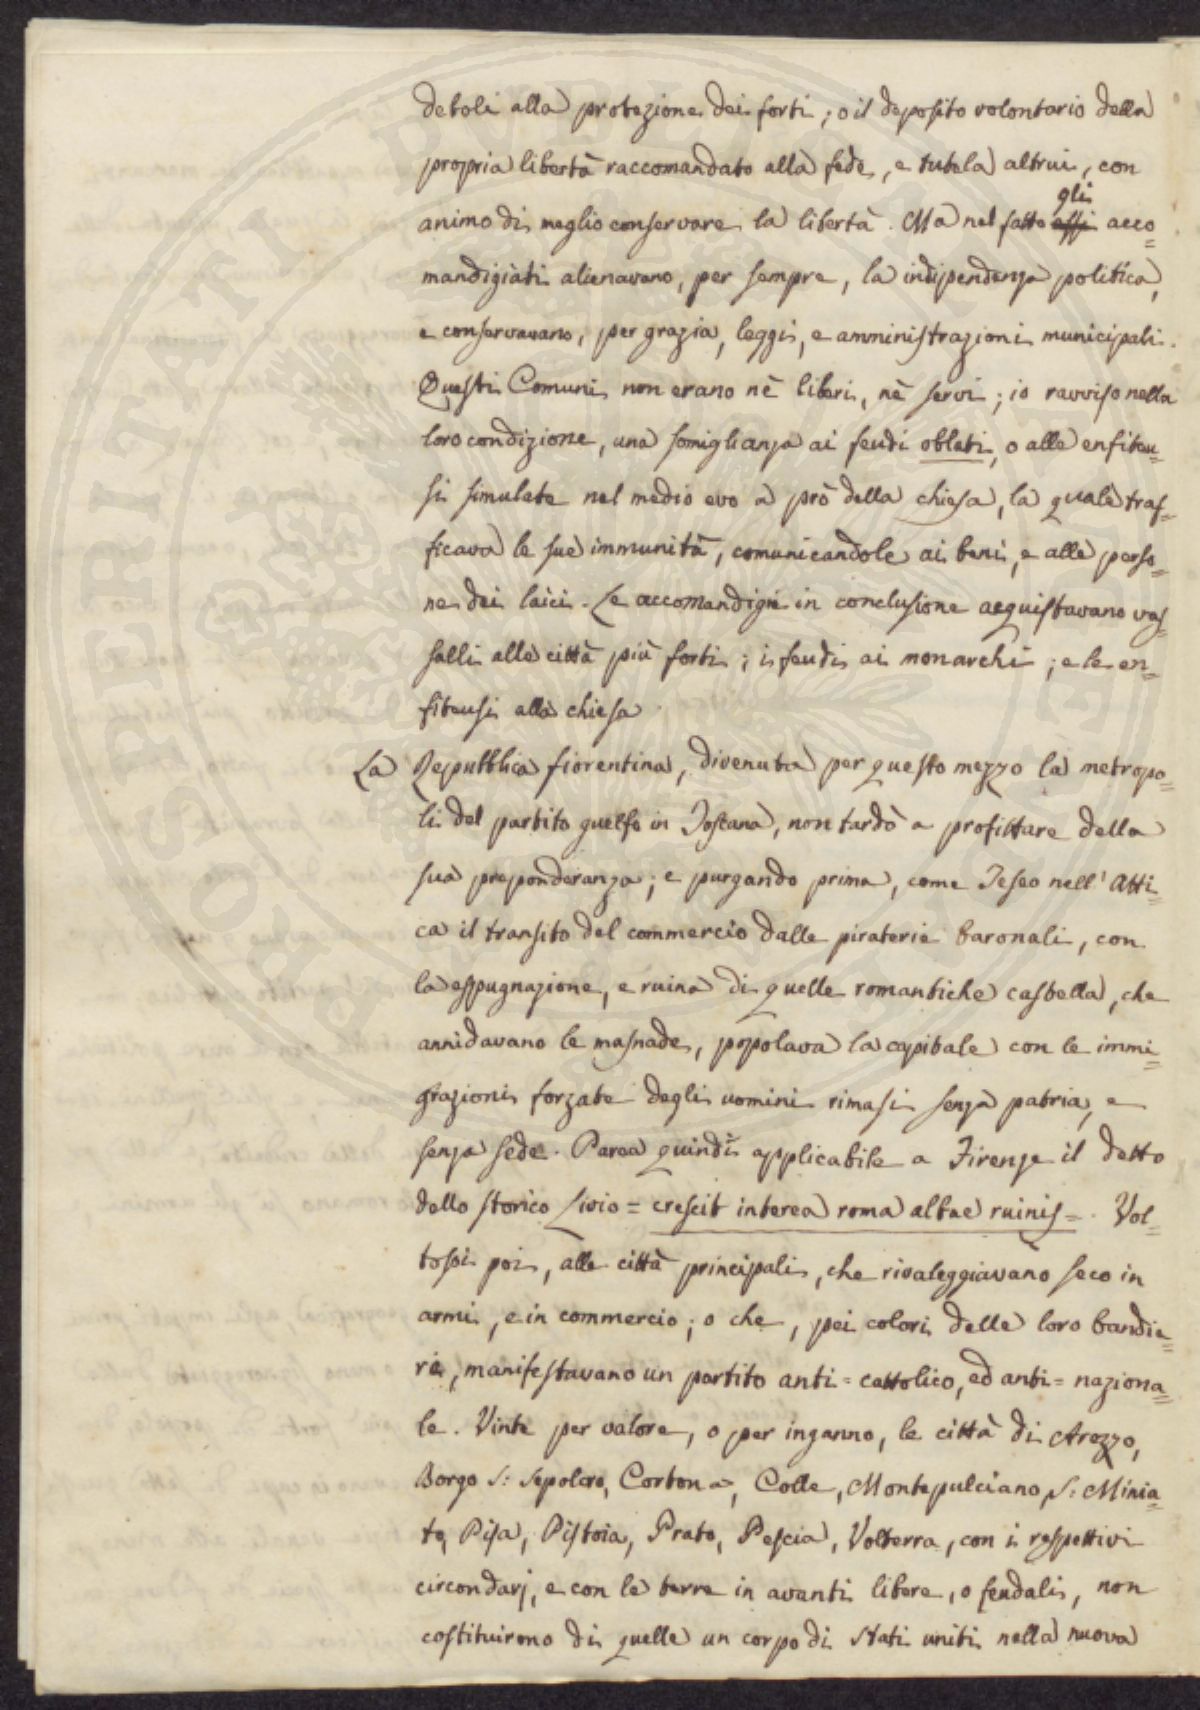 deboli alla protezione dei forti; o il deposito volontario della
propria libertà raccomandato alla fede, e tutela altrui, con
animo di meglio conservare la libertà. Ma nel fatto gli acco=
mandigiati alienavano, per sempre, la indipendenza politica,
e conservavano, per grazia, leggi, e amministrazioni municipali.
Questi Comuni non erano nè liberi, nè servi; io ravviso nella
loro condizione, una somiglianza ai feudi oblati, o alle enfiteu=
si simulate nel medio evo a prò della chiesa, la quale traf=
ficava le sue immunità, comunicandole ai beni, e alle perso=
ne dei laici. Le accomandigie in conclusione acquistavano vas=
salli alle città più forti; i feudi ai monarchi; e le en=
fiteusi alla chiesa.
La Repubblica fiorentina, divenuta per questo mezzo la metropo=
li del partito guelfo in Toscana, non tardò a profittare della
sua preponderanza; e purgando prima, come Teseo nell' Atti=
ca il transito del commercio dalle piraterie baronali, con
la espugnazione, e ruina di quelle romantiche castella, che
annidavano le masnade, popolava la capitale con le immi=
grazioni forzate degli uomini rimasi senza patria, e
senza sede. Parea quindi applicabile a Firenze il detto
dello storico Livio = crescit interea roma albae ruinis =. Vol=
tosi poi, alle città principali, che rivaleggiavano seco in
armi, e in commercio; o che, pei colori delle loro bandie=
re, manifestavano un partito anti=cattolico, ed anti=naziona=
le. Vinte per valore, o per inganno, le città di Arezzo,
Borgo S: Sepolcro, Cortona, Colle, Montepulciano, S: Minia=
to, Pisa, Pistoia, Prato, Pescia, Volterra, con i respettivi
circondarj, e con le terre in avanti libere, o feudali, non
costituirono di quelle un corpo di Stati uniti nella nuova
PROSPERITATI PUBLICAE